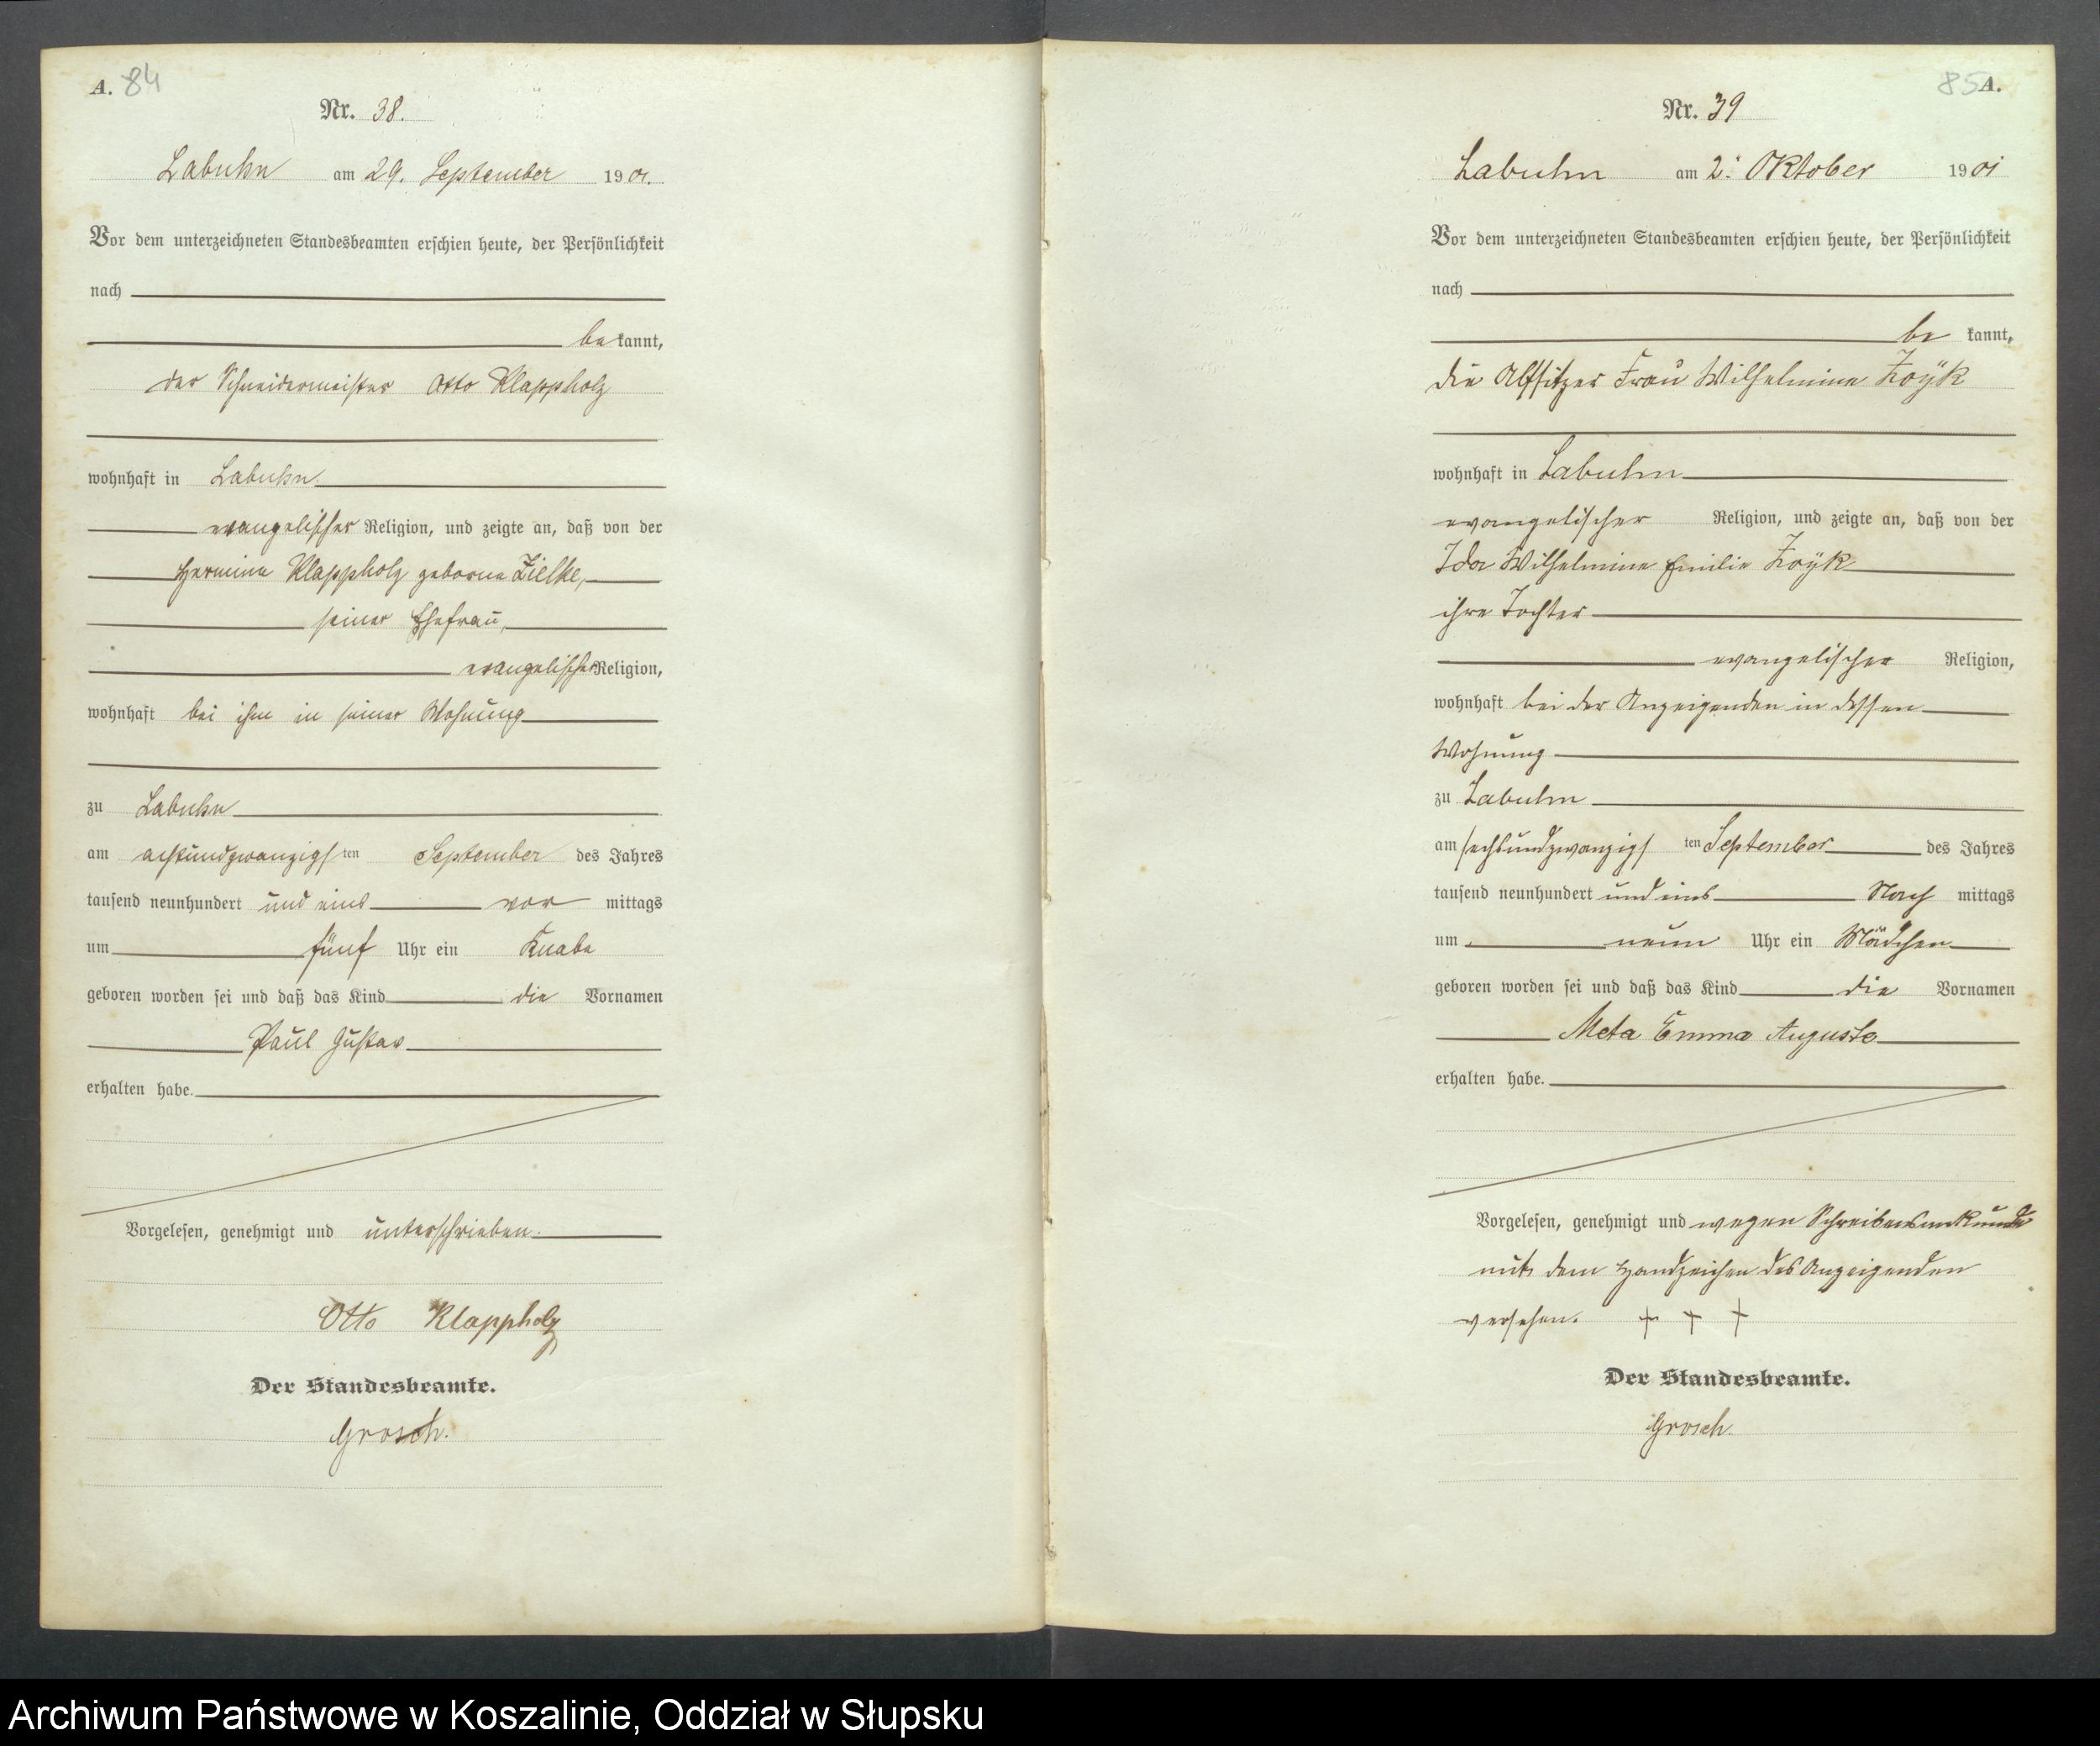 A. 84
Nr. 38.
Labuhn am 29. September 1901.
Vor dem unterzeichneten Standesbeamten erschien heute, der Persönlichkeit
nach
be kannt,
der Schneidermeister Otto Klappholz
wohnhaft in Labuhn
evangelischer Religion, und zeigte an, daß von der
Hermine Klappholz geborne Zielke,
seiner Ehefrau,
evangelischer Religion,
wohnhaft bei ihm in seiner Wohnung
zu Labuhn
am achtundzwanzigsten September des Jahres
tausend neunhundert und eins vor mittags
um fünf Uhr ein Knabe
geboren worden sei und daß das Kind die Vornamen
Paul Gustav
erhalten habe.
Vorgelesen, genehmigt und unterschrieben.
Otto Klappholz
Der Standesbeamte.
Grosch.
85 A.
Nr. 39
Labuhn am 2. Oktober 1901
Vor dem unterzeichneten Standesbeamten erschien heute, der Persönlichkeit
nach
be kannt,
die Altsitzer Frau Wilhelmine
wohnhaft in Labuhn
evangelischer Religion, und zeigte an, daß von der
Ida Wilhelmine Emilie
ihre Tochter
evangelischer Religion,
wohnhaft bei der Anzeigenden in dessen
Wohnung
zu Labuhn
am sechsundzwanzigsten September des Jahres
tausend neunhundert und eins Nach mittags
um neun Uhr ein Mädchen
geboren worden sei und daß das Kind die Vornamen
Meta Emma Auguste
erhalten habe.
Vorgelesen, genehmigt und wegen Schreibensunkunde
mit dem Handzeichen des Anzeigenden
versehen. + + +
Der Standesbeamte.
Grosch.
Archiwum Państwowe w Koszalinie, Oddział w Słupsku